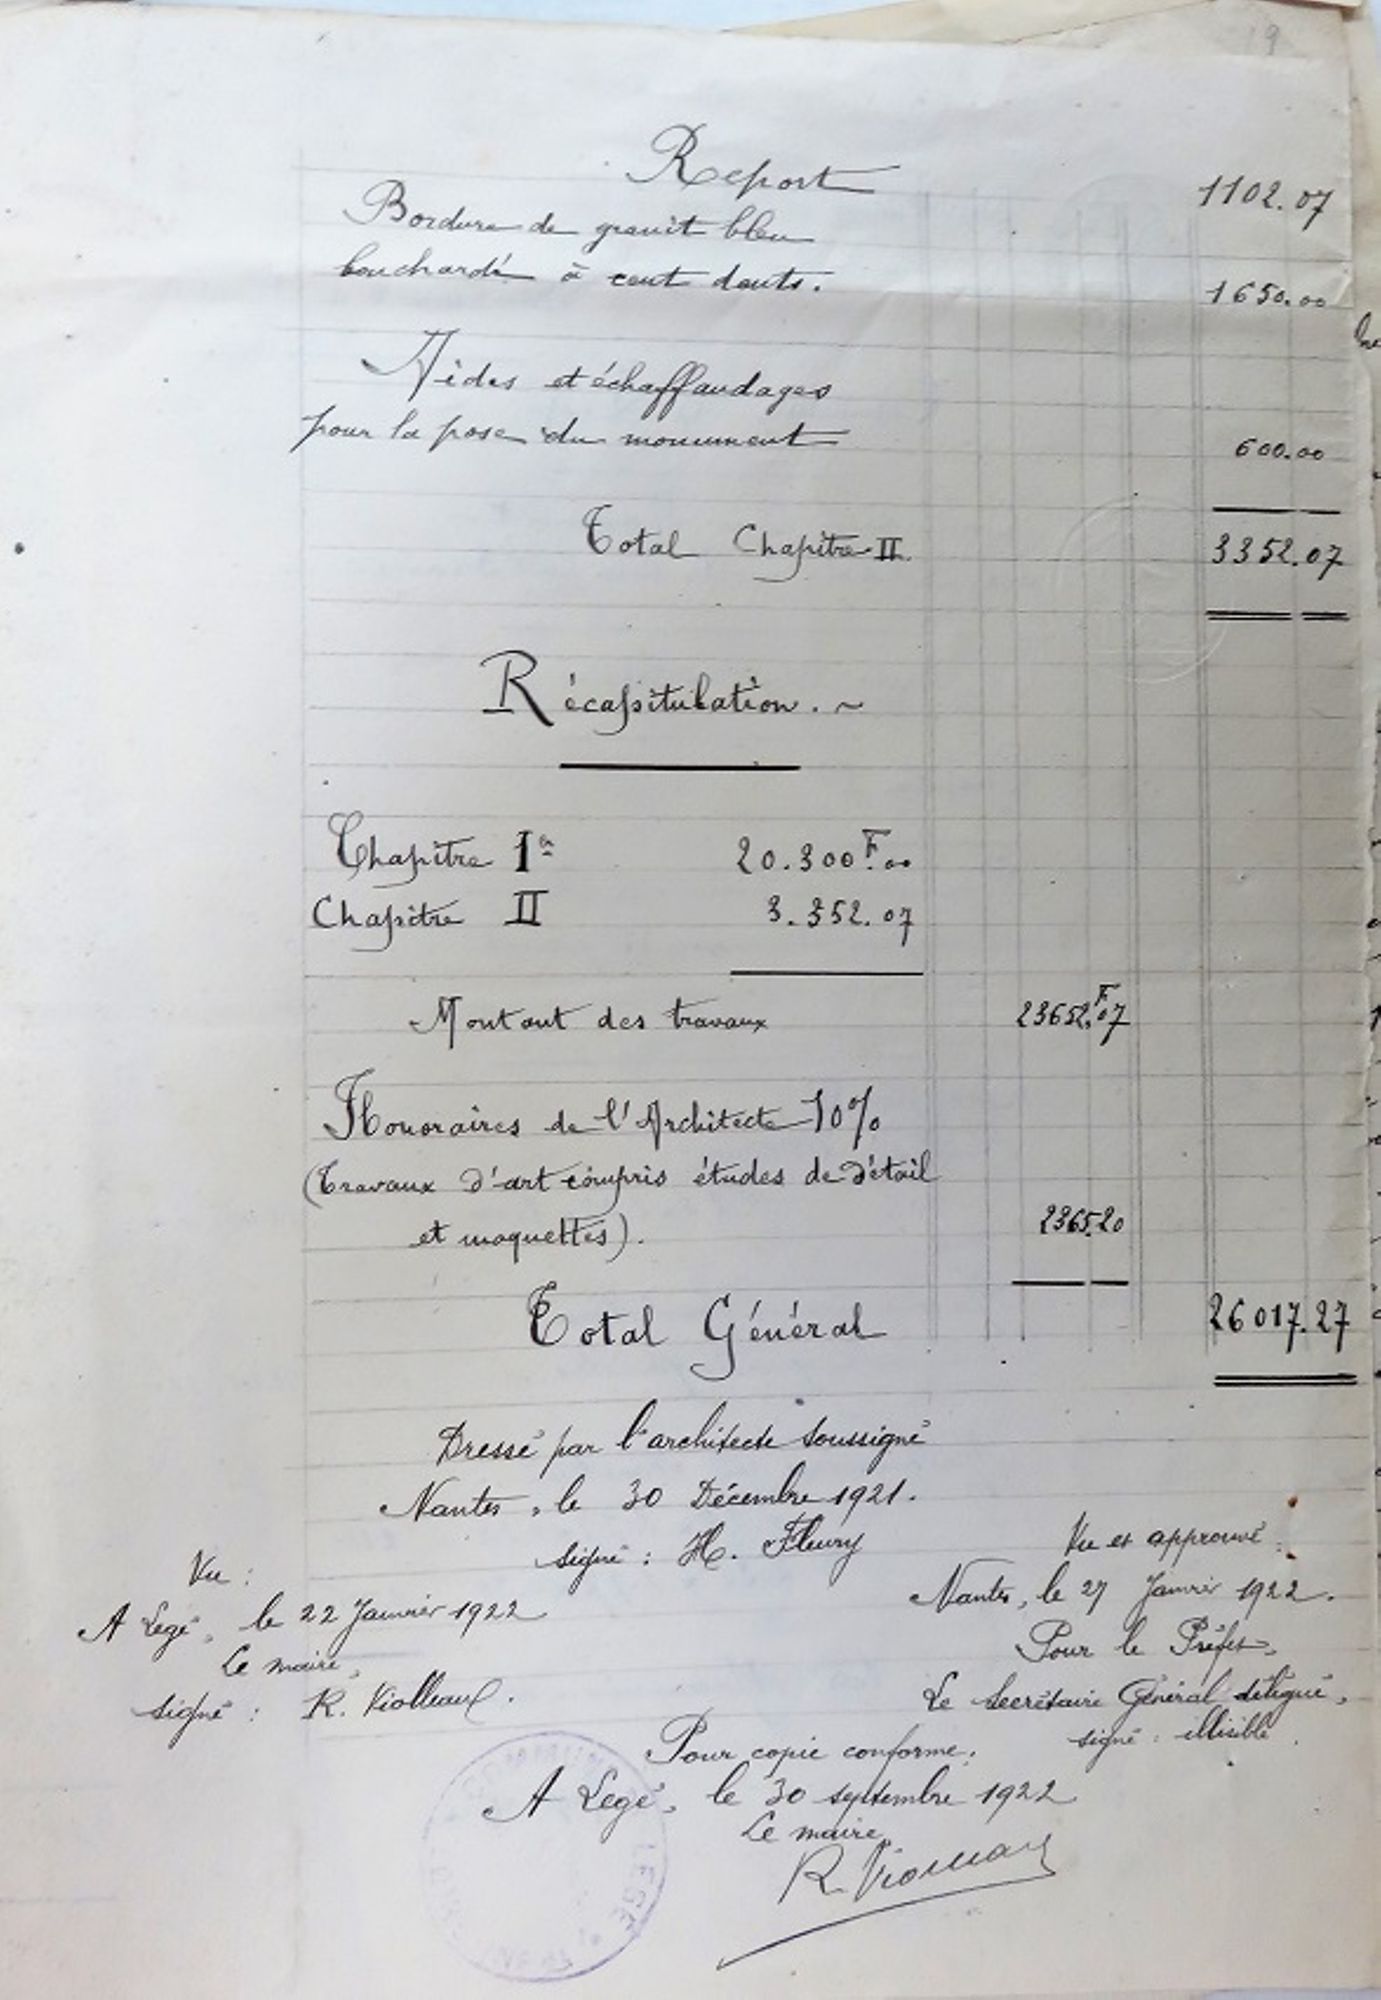 19
Report 1102.07
Bordure de granit bleu
bouchardé à cent dents. 1650.00
Aides et échaffaudages
pour la pose du monument 600.00
Total Chapitre II. 3352.07
Récapitulation. ~
Chapitre Ier 20.300F.00
Chapitre II 3.352.07
Montant des travaux 23652F.07
Honoraires de l'Architecte 10%
(Travaux d'art compris études de détail
et maquettes). 2365.20
Total Général 26017.27
Dressé par l'architecte soussigné
Nantes, le 30 Décembre 1921.
signé : H. Fleury
Vu :
A Legé, le 22 Janvier 1922
Le maire,
signé : R. Violleau.
Vu et approuvé :
Nantes, le 27 Janvier 1922.
Pour le Préfet,
Le Secrétaire Général délégué,
signé : illisible.
Pour copie conforme.
A Legé, le 30 septembre 1922
Le maire,
R. Violleau
LEGÉ